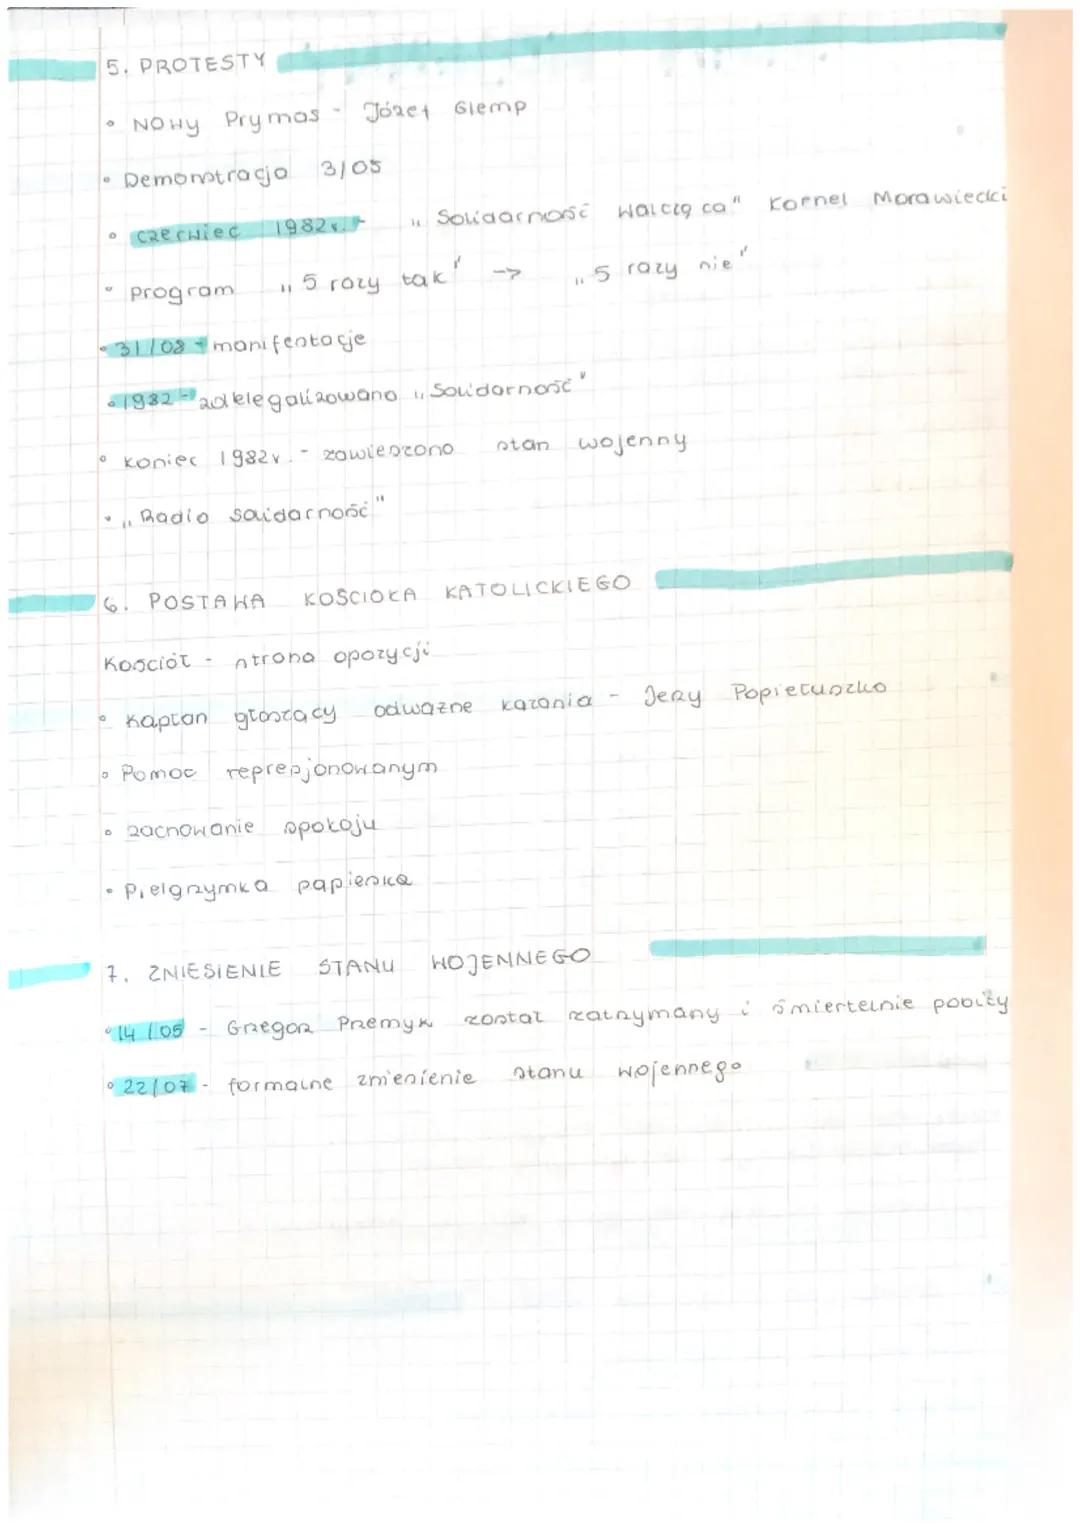 5. PROTESTY
• Nowy Prymas - Józef Glemp
• Demonstracja 3/05
• czerwiec 1982r. - „Solidarność walcząca" Kornel Morawiecki
• program „5 razy tak" -> „5 razy nie"
• 31/08 - manifestacje
• 1982 - zdelegalizowano „Solidarność"
• koniec 1982r. - zawieszono stan wojenny
• „Radio Solidarność"
6. POSTAWA KOŚCIOŁA KATOLICKIEGO
Kościół - strona opozycji
• Kapłan głoszący odważne kazania - Jerzy Popiełuszko
• Pomoc represjonowanym
• zachowanie spokoju
• Pielgrzymka papieska
7. ZNIESIENIE STANU WOJENNEGO
• 14/05 - Grzegorz Przemyk został zatrzymany i śmiertelnie pobity
• 22/07 - formalne zniesienie stanu wojennego